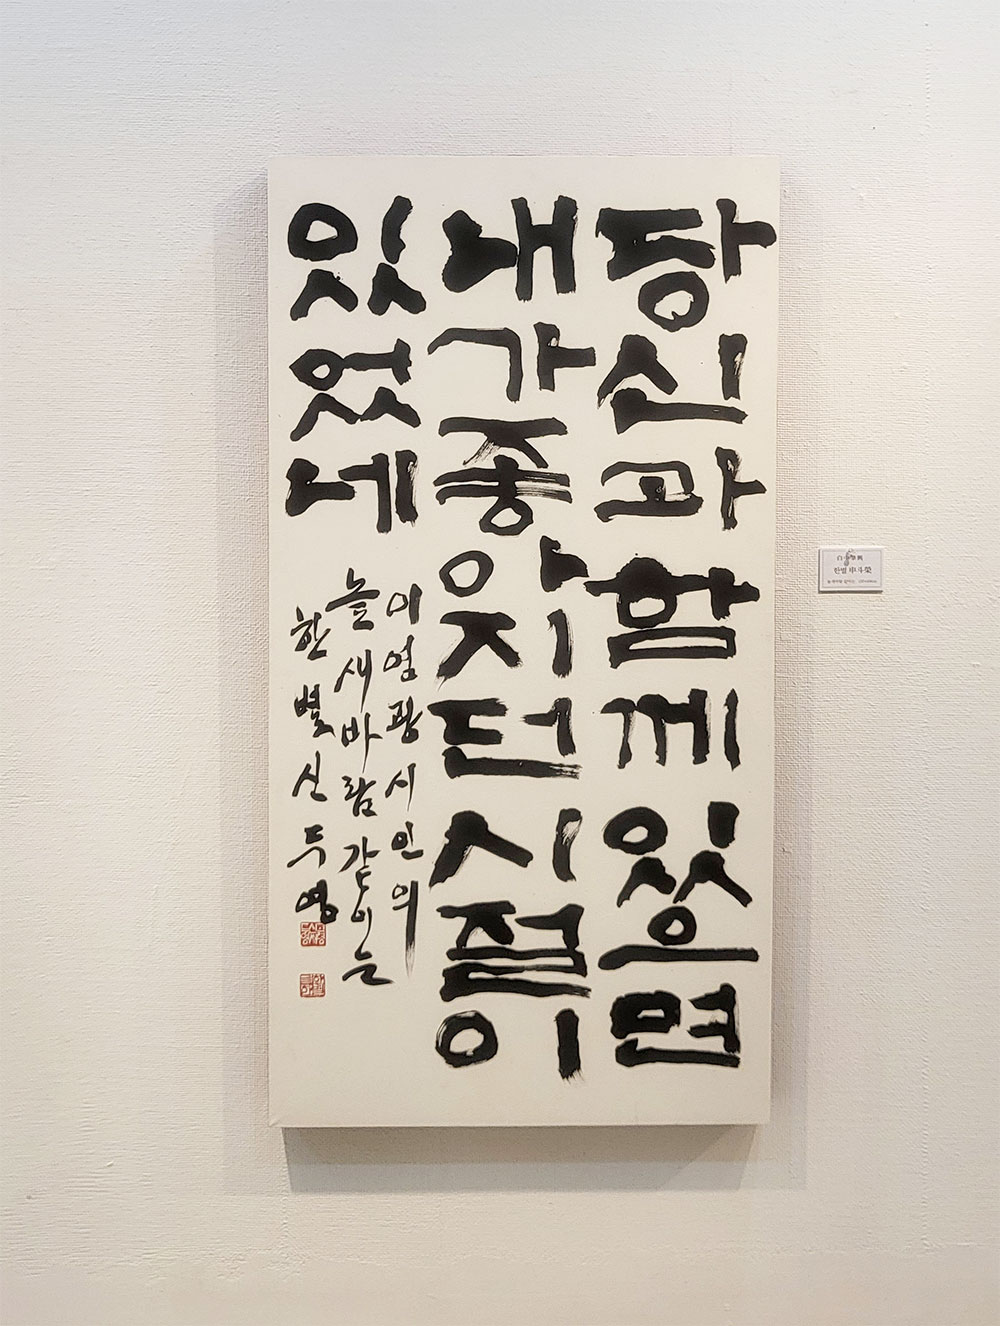 당신과함께있으면
내가좋아지던시절이
있었네
이영광시인의
높새바람같이는
한별신두영
한별 申斗榮